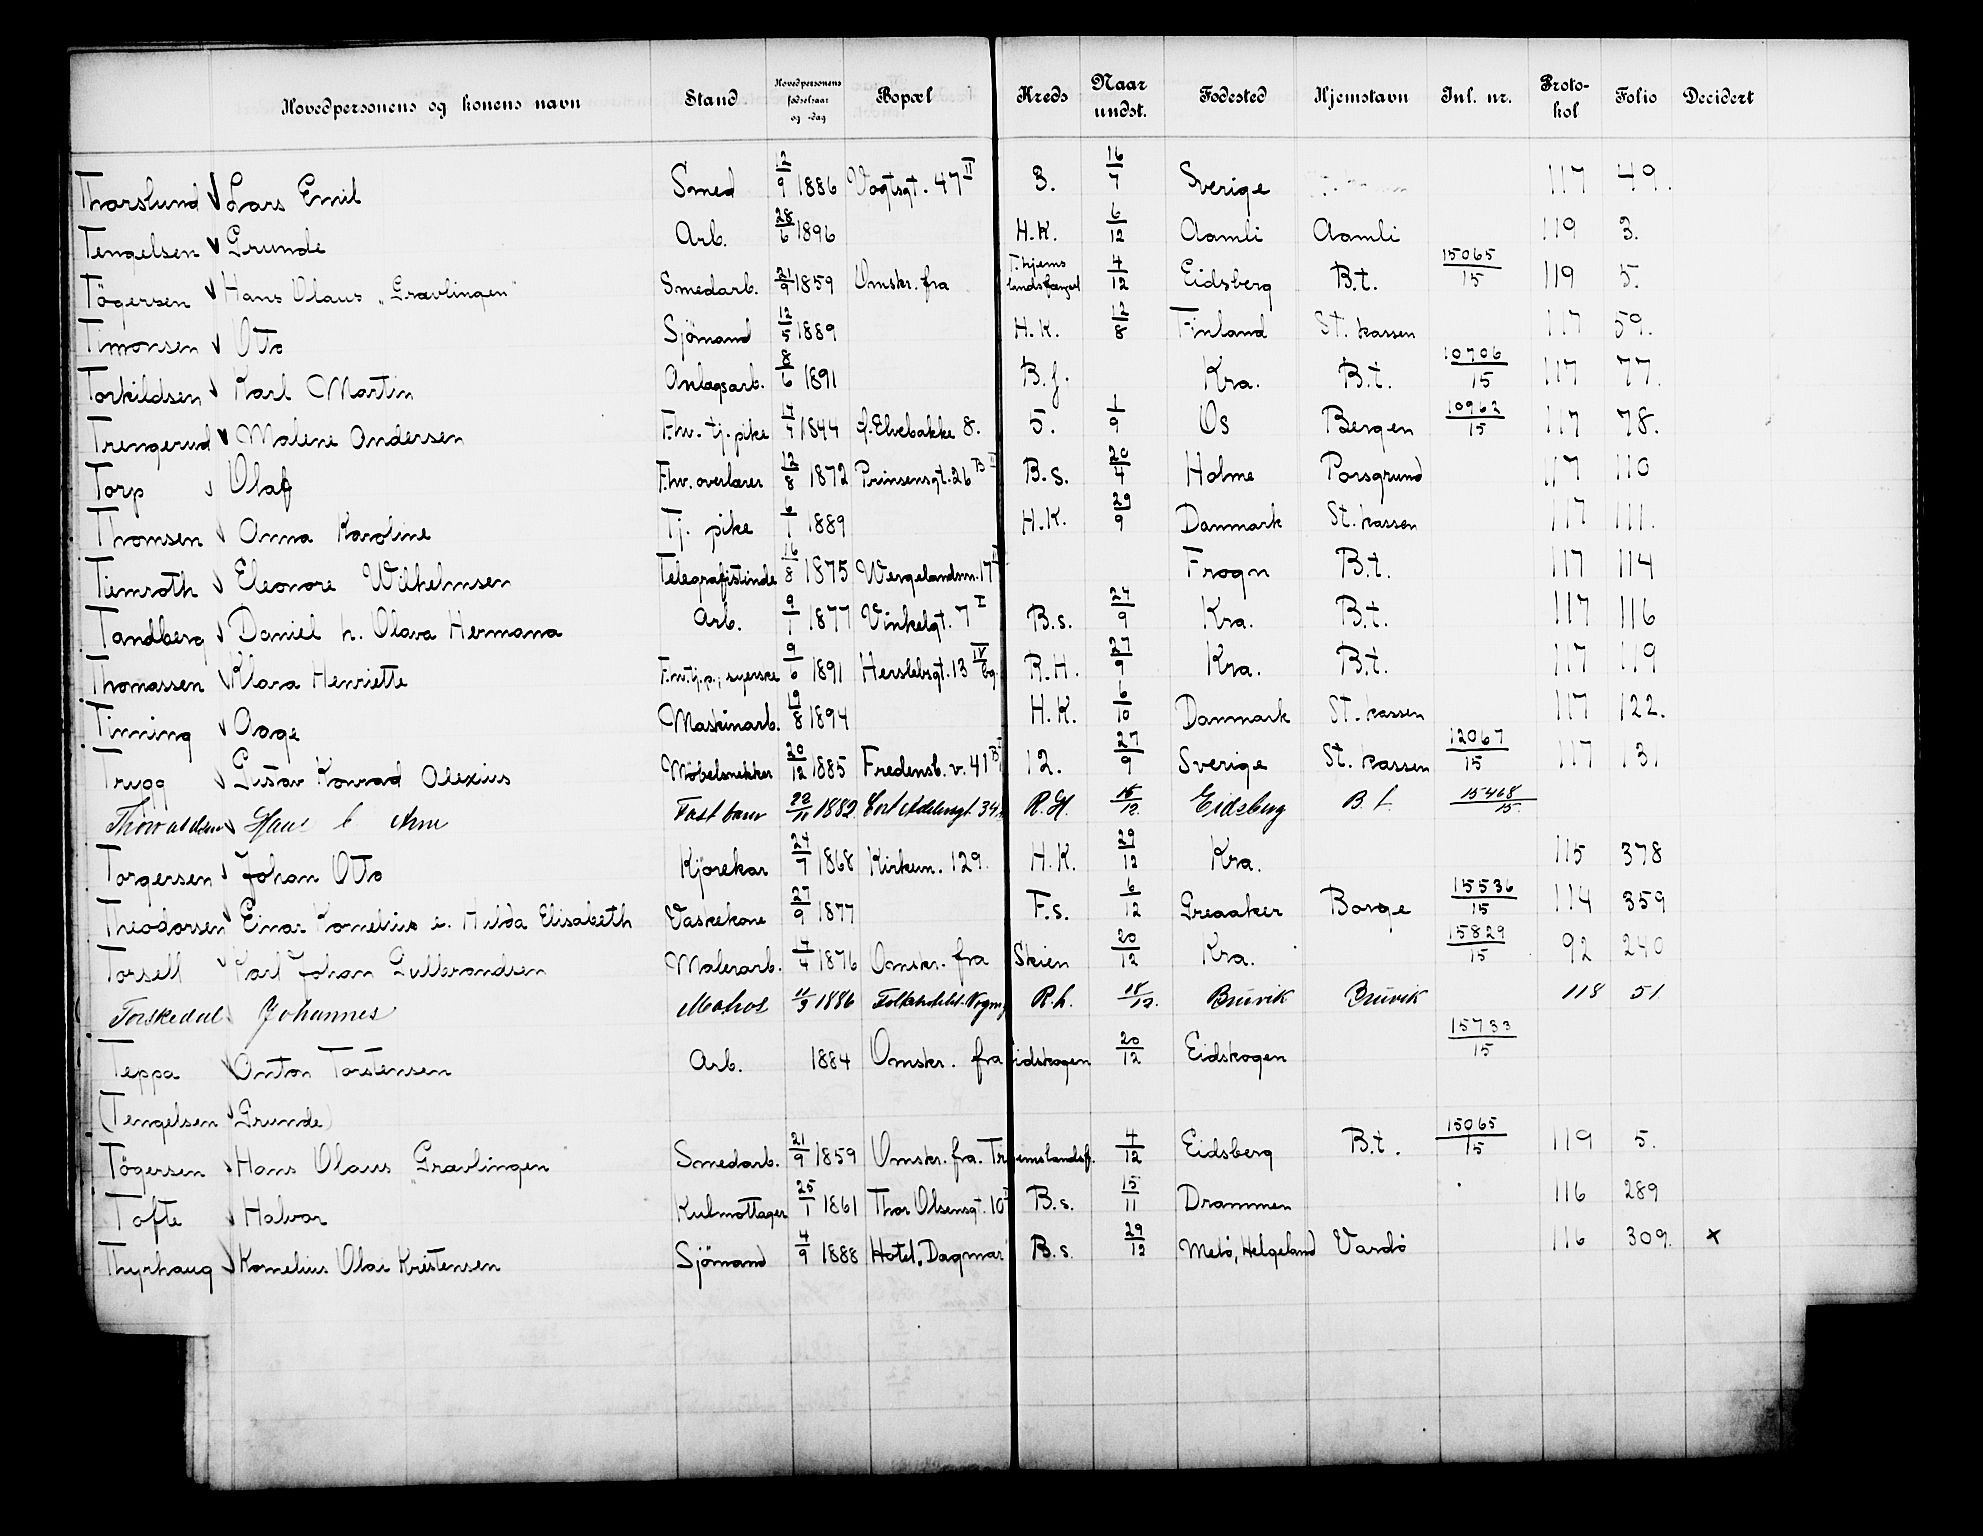 Hovedpersonens og konens navn Stand Hovedpersonens fødselsaar og -dag Bopæl Kreds Naar undst. Fødested Hjemstavn Inl. nr. Protokol Folio Decidert
Thorslund Lars Emil Smed 12/9 1886 Vogtsgt. 47 II 3. 16/7 Sverige 117 49.
Tengelsen Grunde Arb. 28/6 1896 H.K. 6/12 Aamli Aamli 119 3.
Tögersen Hans Olaus „Grævlingen" Smedarb. 21/9 1859 Omskr. fra T.hjems landsfængsel 4/12 Eidsberg B.t. 15065/15 119 5.
Timonsen Otto Sjömand 12/5 1889 H.K. 12/8 Finland St. kassen 117 59.
Torkildsen Karl Martin Anlagsarb. 8/6 1891 B.f. Kra. B.t. 10706/15 117 77.
Trengerud Malene Andersen F.hv. tj. pike 17/7 1844 f. Elvebakke 8. 5. 1/9 Os Bergen 10962/15 117 78.
Torp Olaf F.hv. overlærer 12/8 1872 Prinsensgt. 26 B B.s. 20/4 Holme Porsgrund 117 110
Thomsen Anna Karoline Tj. pike 6/1 1889 H.K. 29/9 Danmark St. kassen 117 111.
Tiemroth Eleonore Wilhelmsen Telegrafistinde 16/8 1875 Wergelandsvn. 17 Frogn B.t. 117 114
Tandberg Daniel h. Olava Hermana Arb. 9/1 1877 Vinkelgt. 7 I B.s. 24/9 Kra. B.t. 117 116
Thomassen Klara Henriette F.hv.tj.p., syerske 9/6 1891 Herslebsgt. 13 IV bg. R.H. 27/9 Kra. B.t. 117 119
Tinning Aage Maskinarb. 19/8 1894 H.K. 6/10 Danmark St. kassen 117 122.
Trygg Gustav Konrad Alexius Möbelsnekker 20/12 1885 Fredensb. v. 41 B 12. 27/9 Sverige St. kassen 12067/15 117 131
Thorvaldsen Hans 1882 34 R.H. Eidsberg B.t. 15468/15
Torgersen Johan Otto Kjörekar 24/7 1868 Kirkevn. 129. H.K. 29/12 Kra. 115 378
Theodorsen Einar Kornelius e. Hilda Elisabeth Vaskekone 27/9 1877 F.s. 6/12 Greaaker Borge 15536/15 114 359
Torsell Karl Johan Gulbrandsen Malerarb. 7/4 1876 Omskr. fra Skien 20/12 Kra. 15829/15 92 240
Torskedal Johannes 11/9 1886 18/12. Bruvik Bruvik 118 51
Teppa Anton Torstensen Arb. 1884 Omskr. fra Eidskogen 20/12 Eidskogen 15733/15
(Tengelsen Grunde)
Tögersen Hans Olaus „Grævlingen Smedarb. 21/9 1859 Omskr. fra Tr.hjemslandsf. 4/12 Eidsberg B.t. 15065/15 119 5.
Tofte Halvor Kulmottager 25/1 1861 Thor Olsensgt. 10 B.s. 15/11 Drammen 116 289
Thyrhaug Kornelius Olai Kristensen Sjömand 4/9 1888 Hotel „Dagmar" B.s. 29/12 Melö, Helgeland Vardö 116 309. x